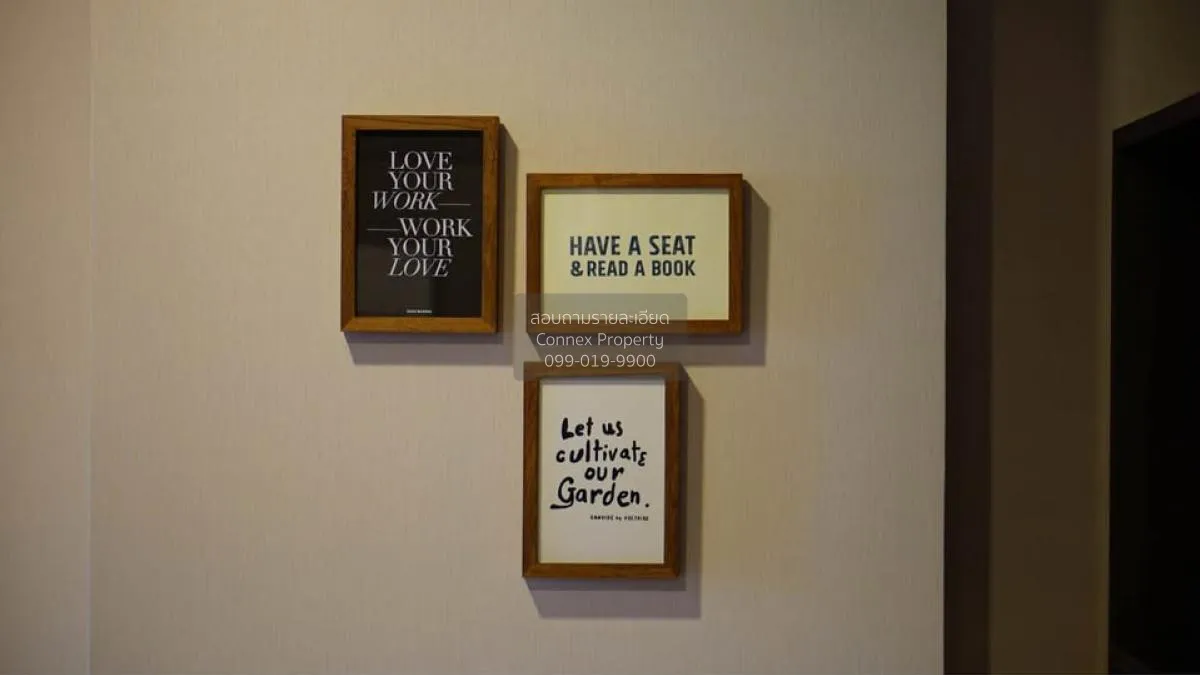 LOVE
YOUR
WORK—
—WORK
YOUR
LOVE
HAVE A SEAT
& READ A BOOK
สอบถามรายละเอียด
Connex Property
099-019-9900
Let us
cultivate
our
Garden.
CANDIDE by VOLTAIRE